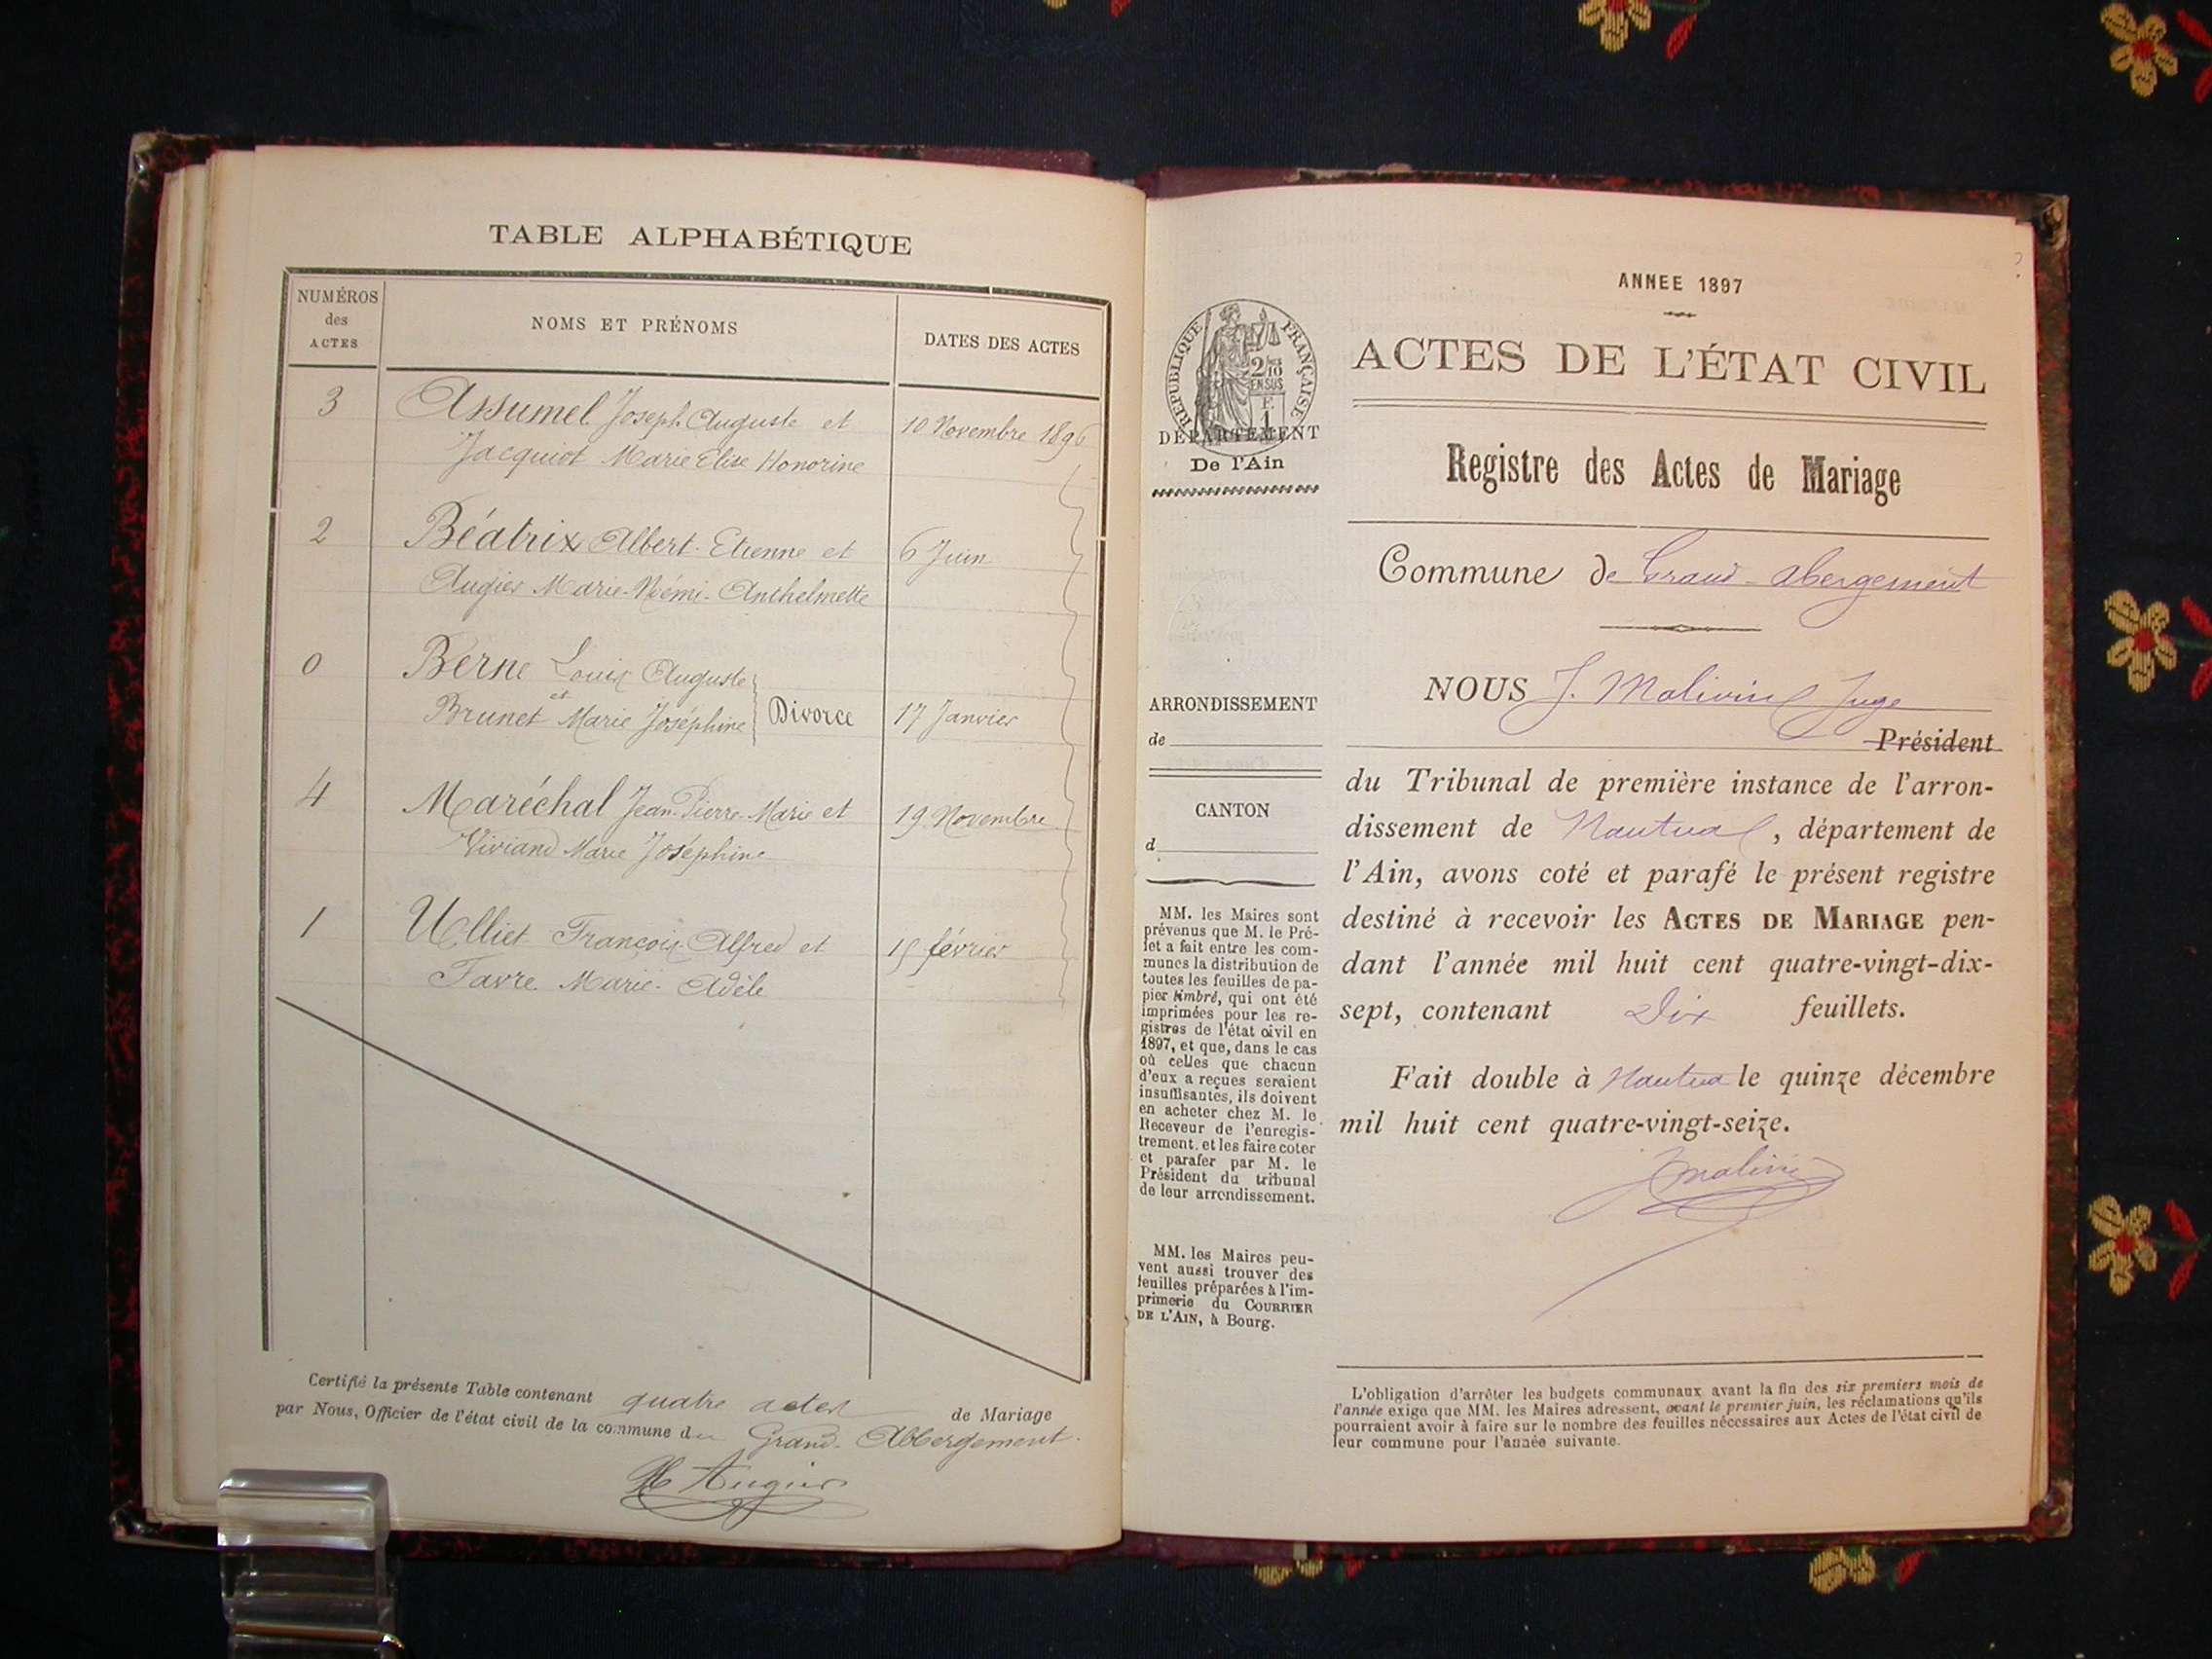 TABLE ALPHABÉTIQUE
NUMÉROS
des
ACTES
NOMS ET PRÉNOMS
DATES DES ACTES
3 Assumel Joseph Auguste et 10 Novembre 1896
Jacquiot Marie Elise Honorine
2 Béatrix Albert-Etienne et 6 Juin
Augier Marie-Noémi-Anthelmette
0 Berne Louis Auguste
et
Brunet Marie Joséphine Divorce 17 Janvier
4 Maréchal Jean-Pierre-Marie et 19 Novembre
Viviand Marie Joséphine
1 Ulliet François-Alfred et 15 février
Favre Marie-Adèle
Certifié la présente Table contenant quatre actes de Mariage
par Nous, Officier de l'état civil de la commune du Grand-Abbergement.
Augier
ANNEE 1897
ACTES DE L'ÉTAT CIVIL
RÉPUBLIQUE FRANÇAISE
2/10
EN SUS
F.
1
DÉPARTEMENT
De l'Ain
Registre des Actes de Mariage
Commune de Grand-abergement
NOUS J. Malivin Juge
Président
du Tribunal de première instance de l'arron-
dissement de Nantua, département de
l'Ain, avons coté et parafé le présent registre
destiné à recevoir les ACTES DE MARIAGE pen-
dant l'année mil huit cent quatre-vingt-dix-
sept, contenant Dix feuillets.
Fait double à Nantua le quinze décembre
mil huit cent quatre-vingt-seize.
JMalivin
ARRONDISSEMENT
de
CANTON
d
MM. les Maires sont
prévenus que M. le Pré-
fet a fait entre les com-
munes la distribution de
toutes les feuilles de pa-
pier timbré, qui ont été
imprimées pour les re-
gistres de l'état civil en
1897, et que, dans le cas
où celles que chacun
d'eux a reçues seraient
insuffisantes, ils doivent
en acheter chez M. le
Receveur de l'enregis-
trement, et les faire coter
et parafer par M. le
Président du tribunal
de leur arrondissement.
MM. les Maires peu-
vent aussi trouver des
feuilles préparées à l'im-
primerie du COURRIER
DE L'AIN, à Bourg.
L'obligation d'arrêter les budgets communaux avant la fin des six premiers mois de
l'année exige que MM. les Maires adressent, avant le premier juin, les réclamations qu'ils
pourraient avoir à faire sur le nombre des feuilles nécessaires aux Actes de l'état civil de
leur commune pour l'année suivante.